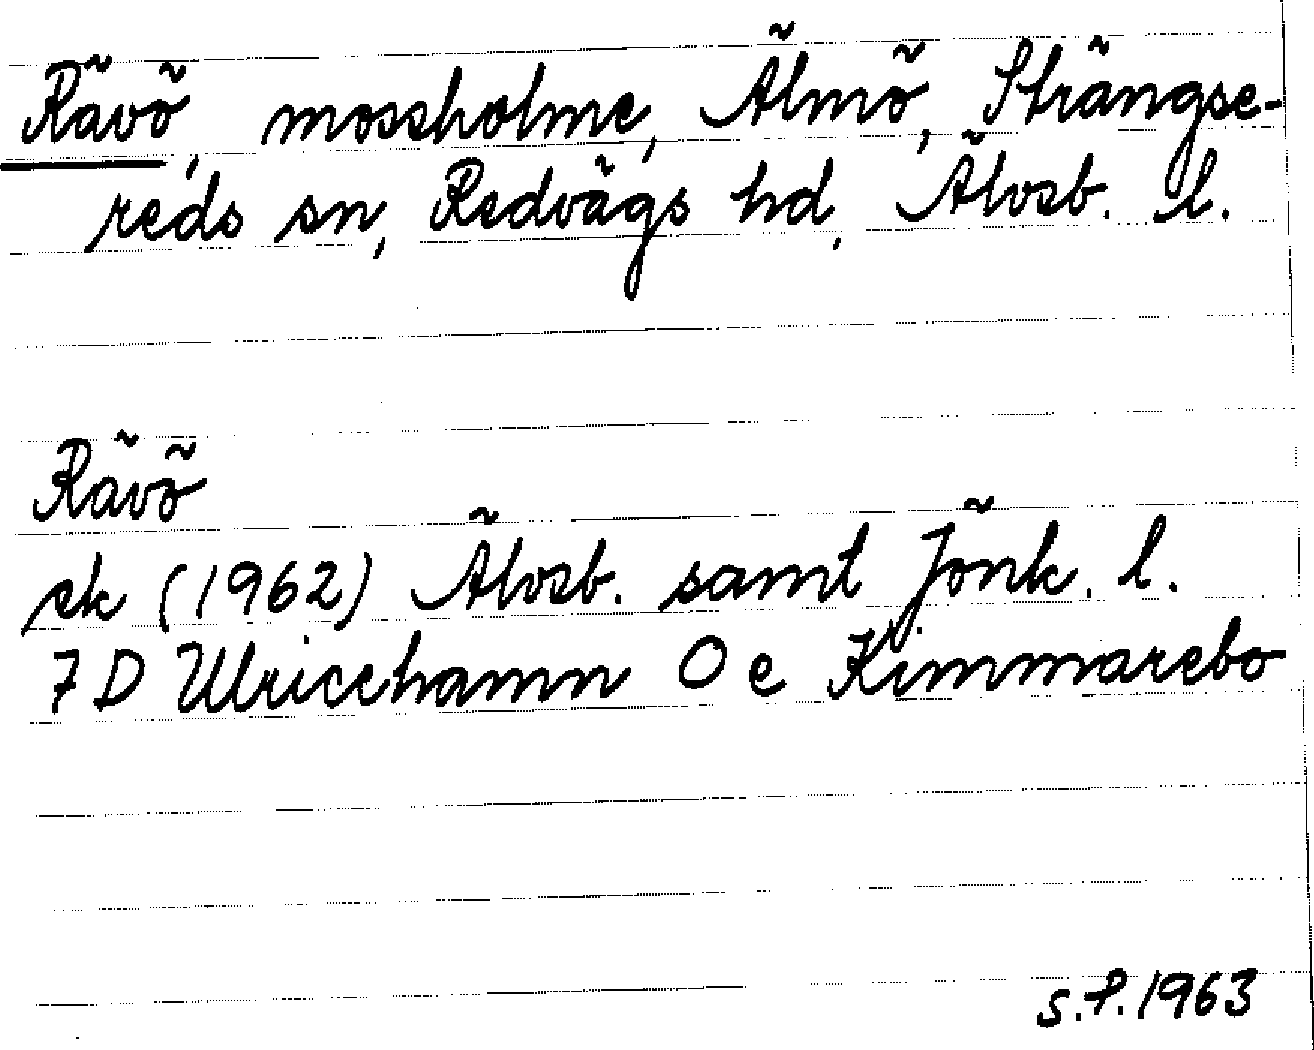 Rävö, mossholme, Älmö, Strängse-
reds sn, Redvägs hd, Älvsb. l.
Rävö
ek (1962) Älvsb. samt Jönk. l.
7 D Ulricehamn O e Kimmarebo
S.P. 1963